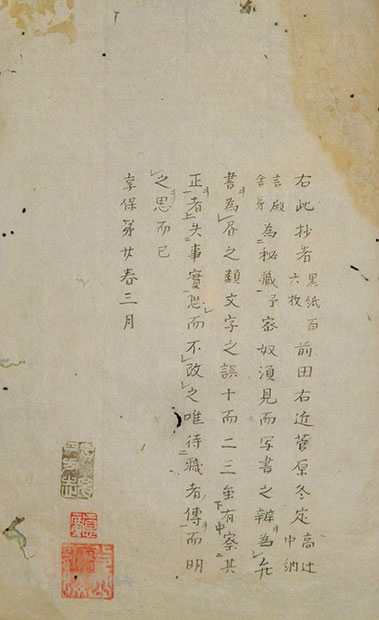 右此抄者 黒紙百六枚 前田右近菅原冬定 高辻中納
言殿舎弟 為秘藏予密奴須見而写書之 為
書為 之類文字之誤十而二三 有察其
正者失事實恐而不改之唯待藏者傳而明
之思而已
享保第廿春三月